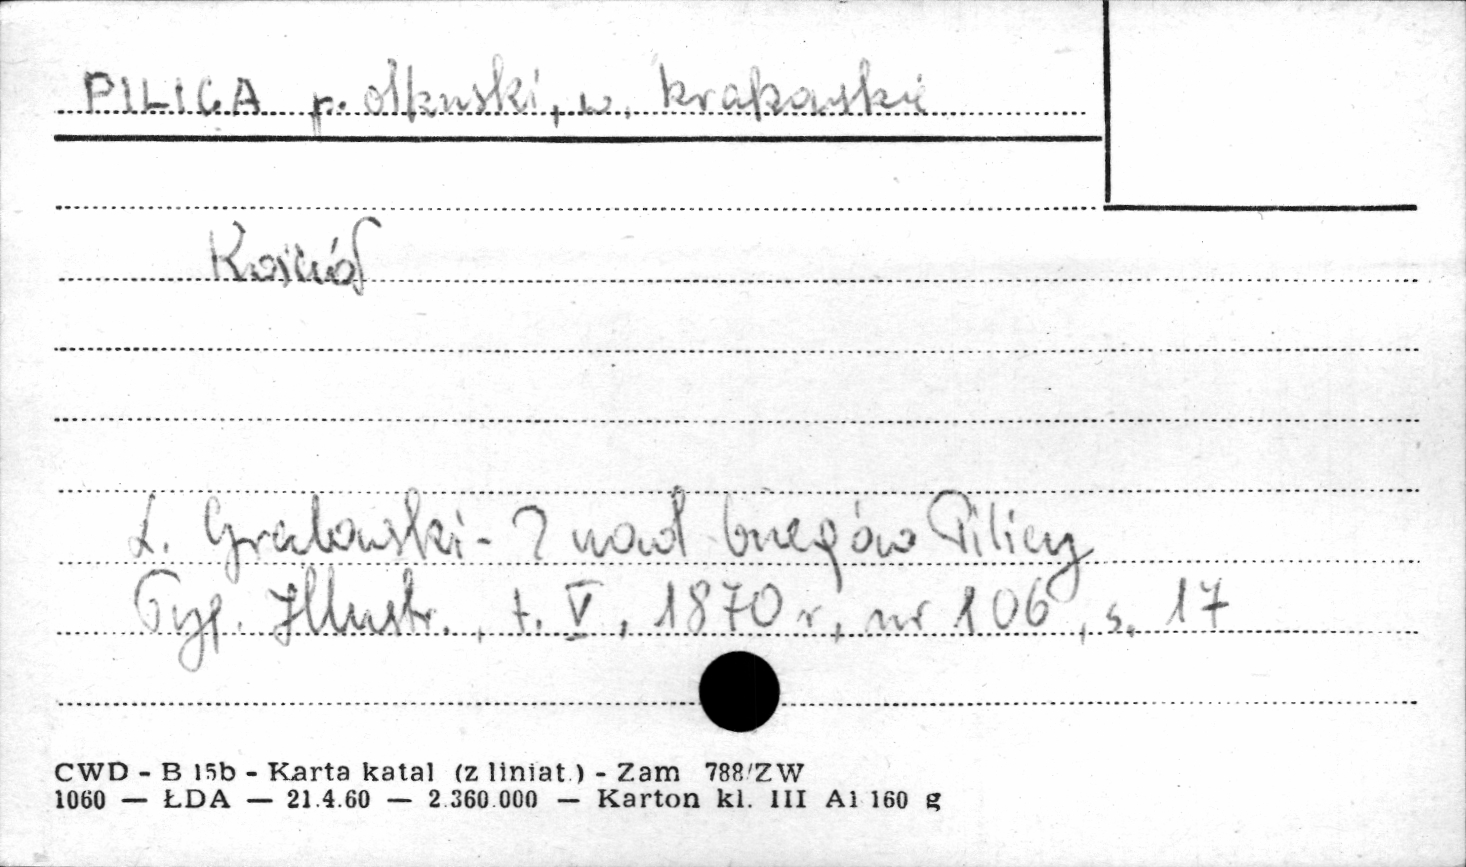 PILICA p. olkuski, w. krakowskie
Kościół
L. Grabowski - Z nad brzegów Pilicy
Tyg. Illustr., t. V, 1870 r, nr 106, s. 17
CWD - B 15b - Karta katal (z liniat.) - Zam 788/ZW
1060 — ŁDA — 21.4.60 — 2.360.000 — Karton kl. III A1 160 g